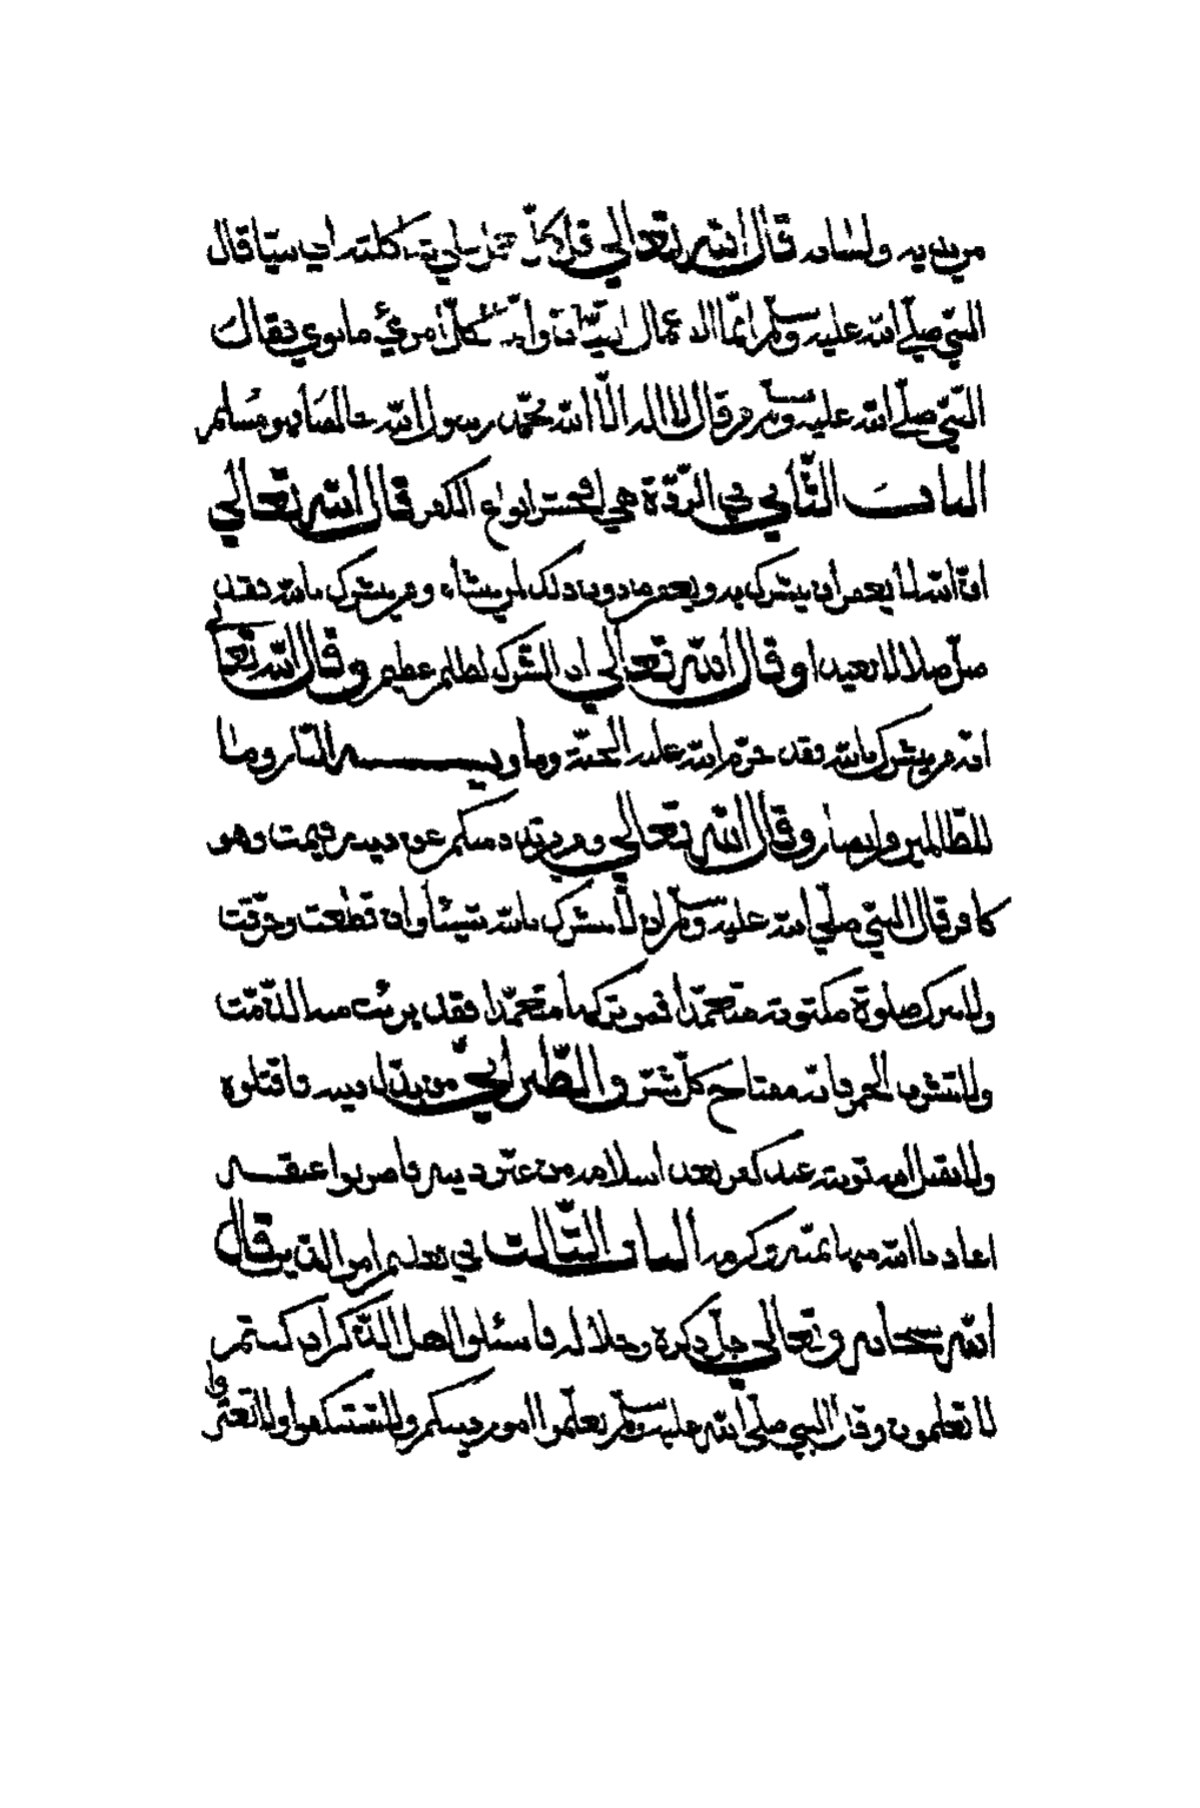 من يديه ولسانه قال الله تعالي قل كلّ يعمل علي شاكلته اي نيته قال
النبّي صلّي الله عليه وسلّم انمّا الاعمال بالنيّات وانّما لكلّ امرئ ما نوي قال
النبّي صلّي الله عليه وسلّم من قال لا اله الّا الله محمّد رسول الله خالصا فهو مسلم
الباب الثّاني في الردّة هي افحش انواع الكفر قال الله تعالي
انّ الله لا يغفر ان يشرك به ويغفر ما دون ذلك لمن يشاء ومن يشرك بالله فقد
ضلّ ضلالا بعيدا وقال الله تعالي ان الشرك لظلم عظيم وقال الله تعالي
انه من يشرك بالله فقد حرّم الله عليه الجنّة وماويه النّار وما
للظّالمين من انصار وقال الله تعالي ومن يرتد منكم عن دينه فيمت وهو
كافر قال النبّي صلّي الله عليه وسلّم ان لا تشرك بالله شيئا وان قطعت وحرّقت
ولا تترك صلوة مكتوبة متعمّدا فمن تركها متعمّدا فقد برئت منه الذّمّة
ولا تشرب الخمر فانه مفتاح كلّ شرّ والطّبراني من بدّل دينه فاقتلوه
ولا يقبل الله توبة عبد كفر بعد اسلامه من غيّر دينه فاضربوا عنقه
اعاذنا الله منها بمنّه وكرمه الباب الثّالث في تعليم امر الدّين قال
الله سبحانه وتعالي جلّ ذكره وجلاله فاسئلوا اهل الذّكر ان كنتم
لا تعلمون وقال النبي صلّي الله عليه وسلّم تعلّموا امور دينكم ولا تستنكفوا ولا تغترّوا